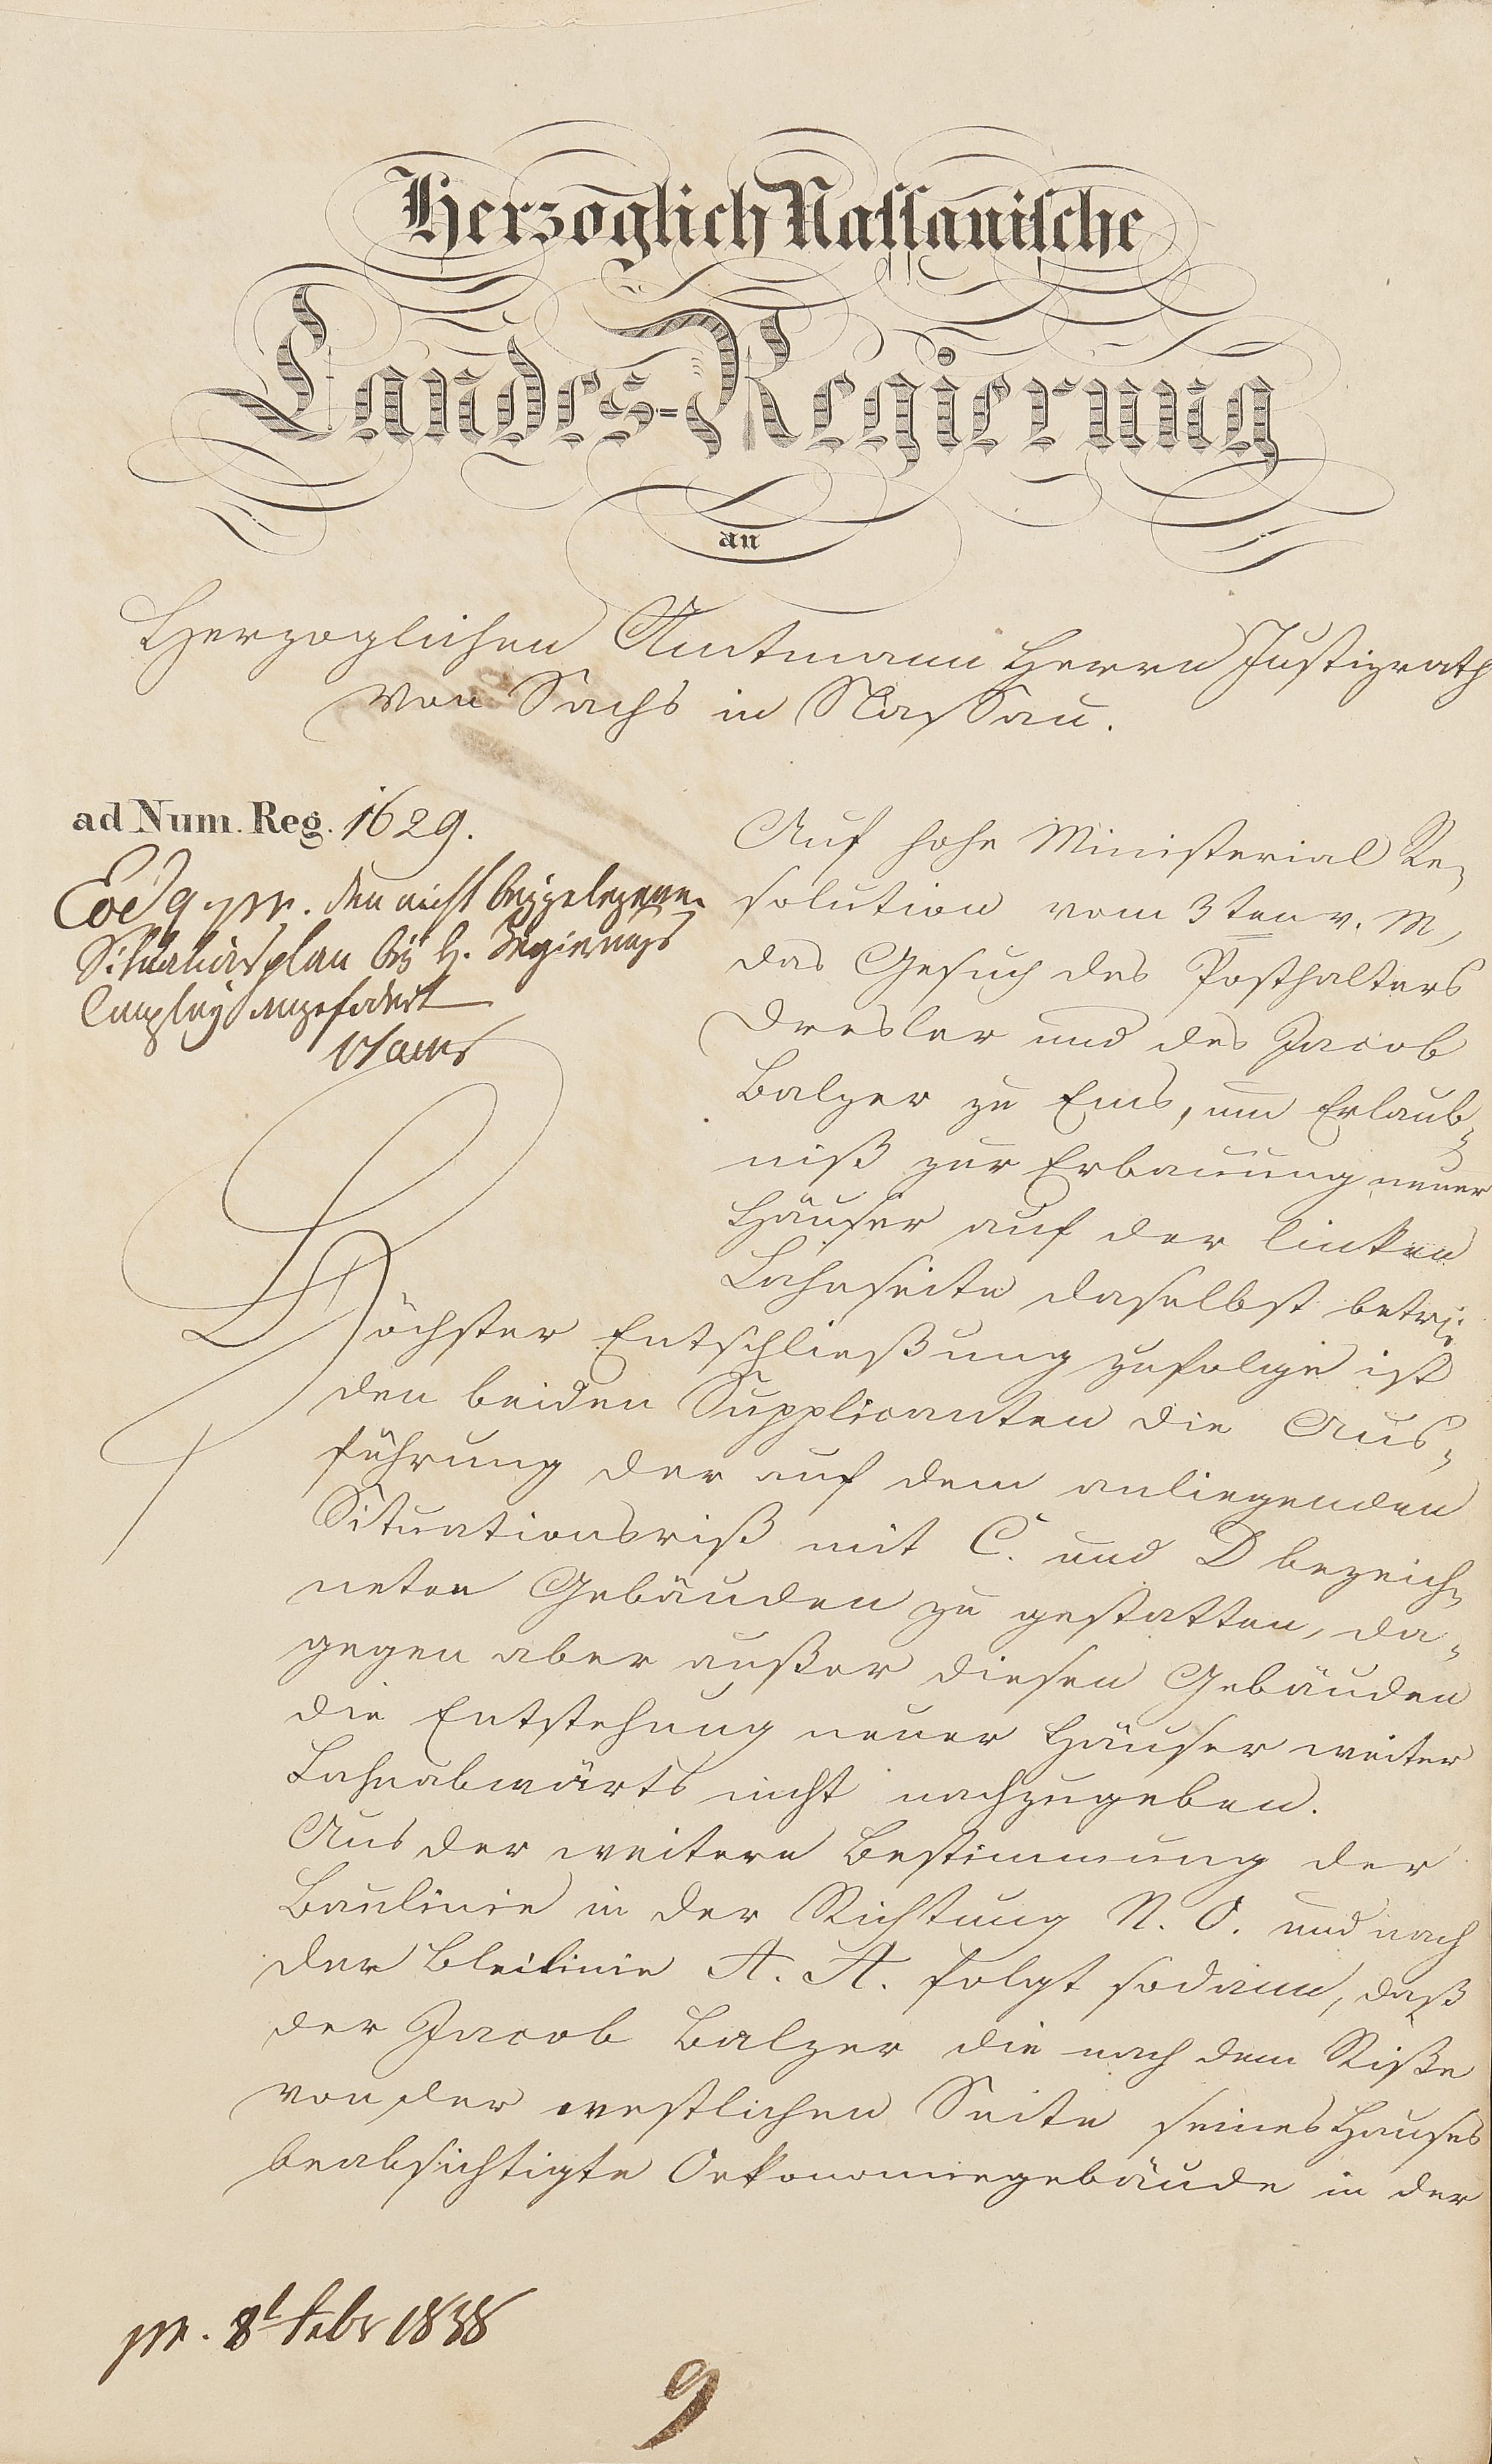 Herzoglich Nassauische
Landes-Regierung
an
Herzoglichen Amtmann Herrn Justizrath
von Sachs in Nassau.
ad Num. Reg. 1629.
Eod. den nicht beygelegenen
Situationsplan bey H. Regierungs
Canzley angefodert
Auf hohe Ministerial Re-
solution vom 3ten v. M,
das Gesuch des Posthalters
Dresler und des Jacob
Balzer zu Ems, um Erlaub-
niß zur Erbauung neuer
Häuser auf der linken
Lahnseite daselbst betr:
Höchster Entschließung zufolge ist
den beiden Supplicanten die Aus-
führung der auf dem anliegenden
Situationsriß mit C. und D bezeich-
neten Gebäuden zu gestatten, da-
gegen aber außer diesen Gebäuden
die Entstehung neuer Häuser weiter
Lahnabwärts nicht nachzugeben.
Aus der weitern Bestimmung der
Baulinie in der Richtung N. O. und nach
der Bleilinie A. A. folgt sodann, daß
der Jacob Balzer die nach dem Riße
von der westlichen Seite seines Hauses
beabsichtigte Oekonomiegebäude in der
pr. 8t Febr 1838
9